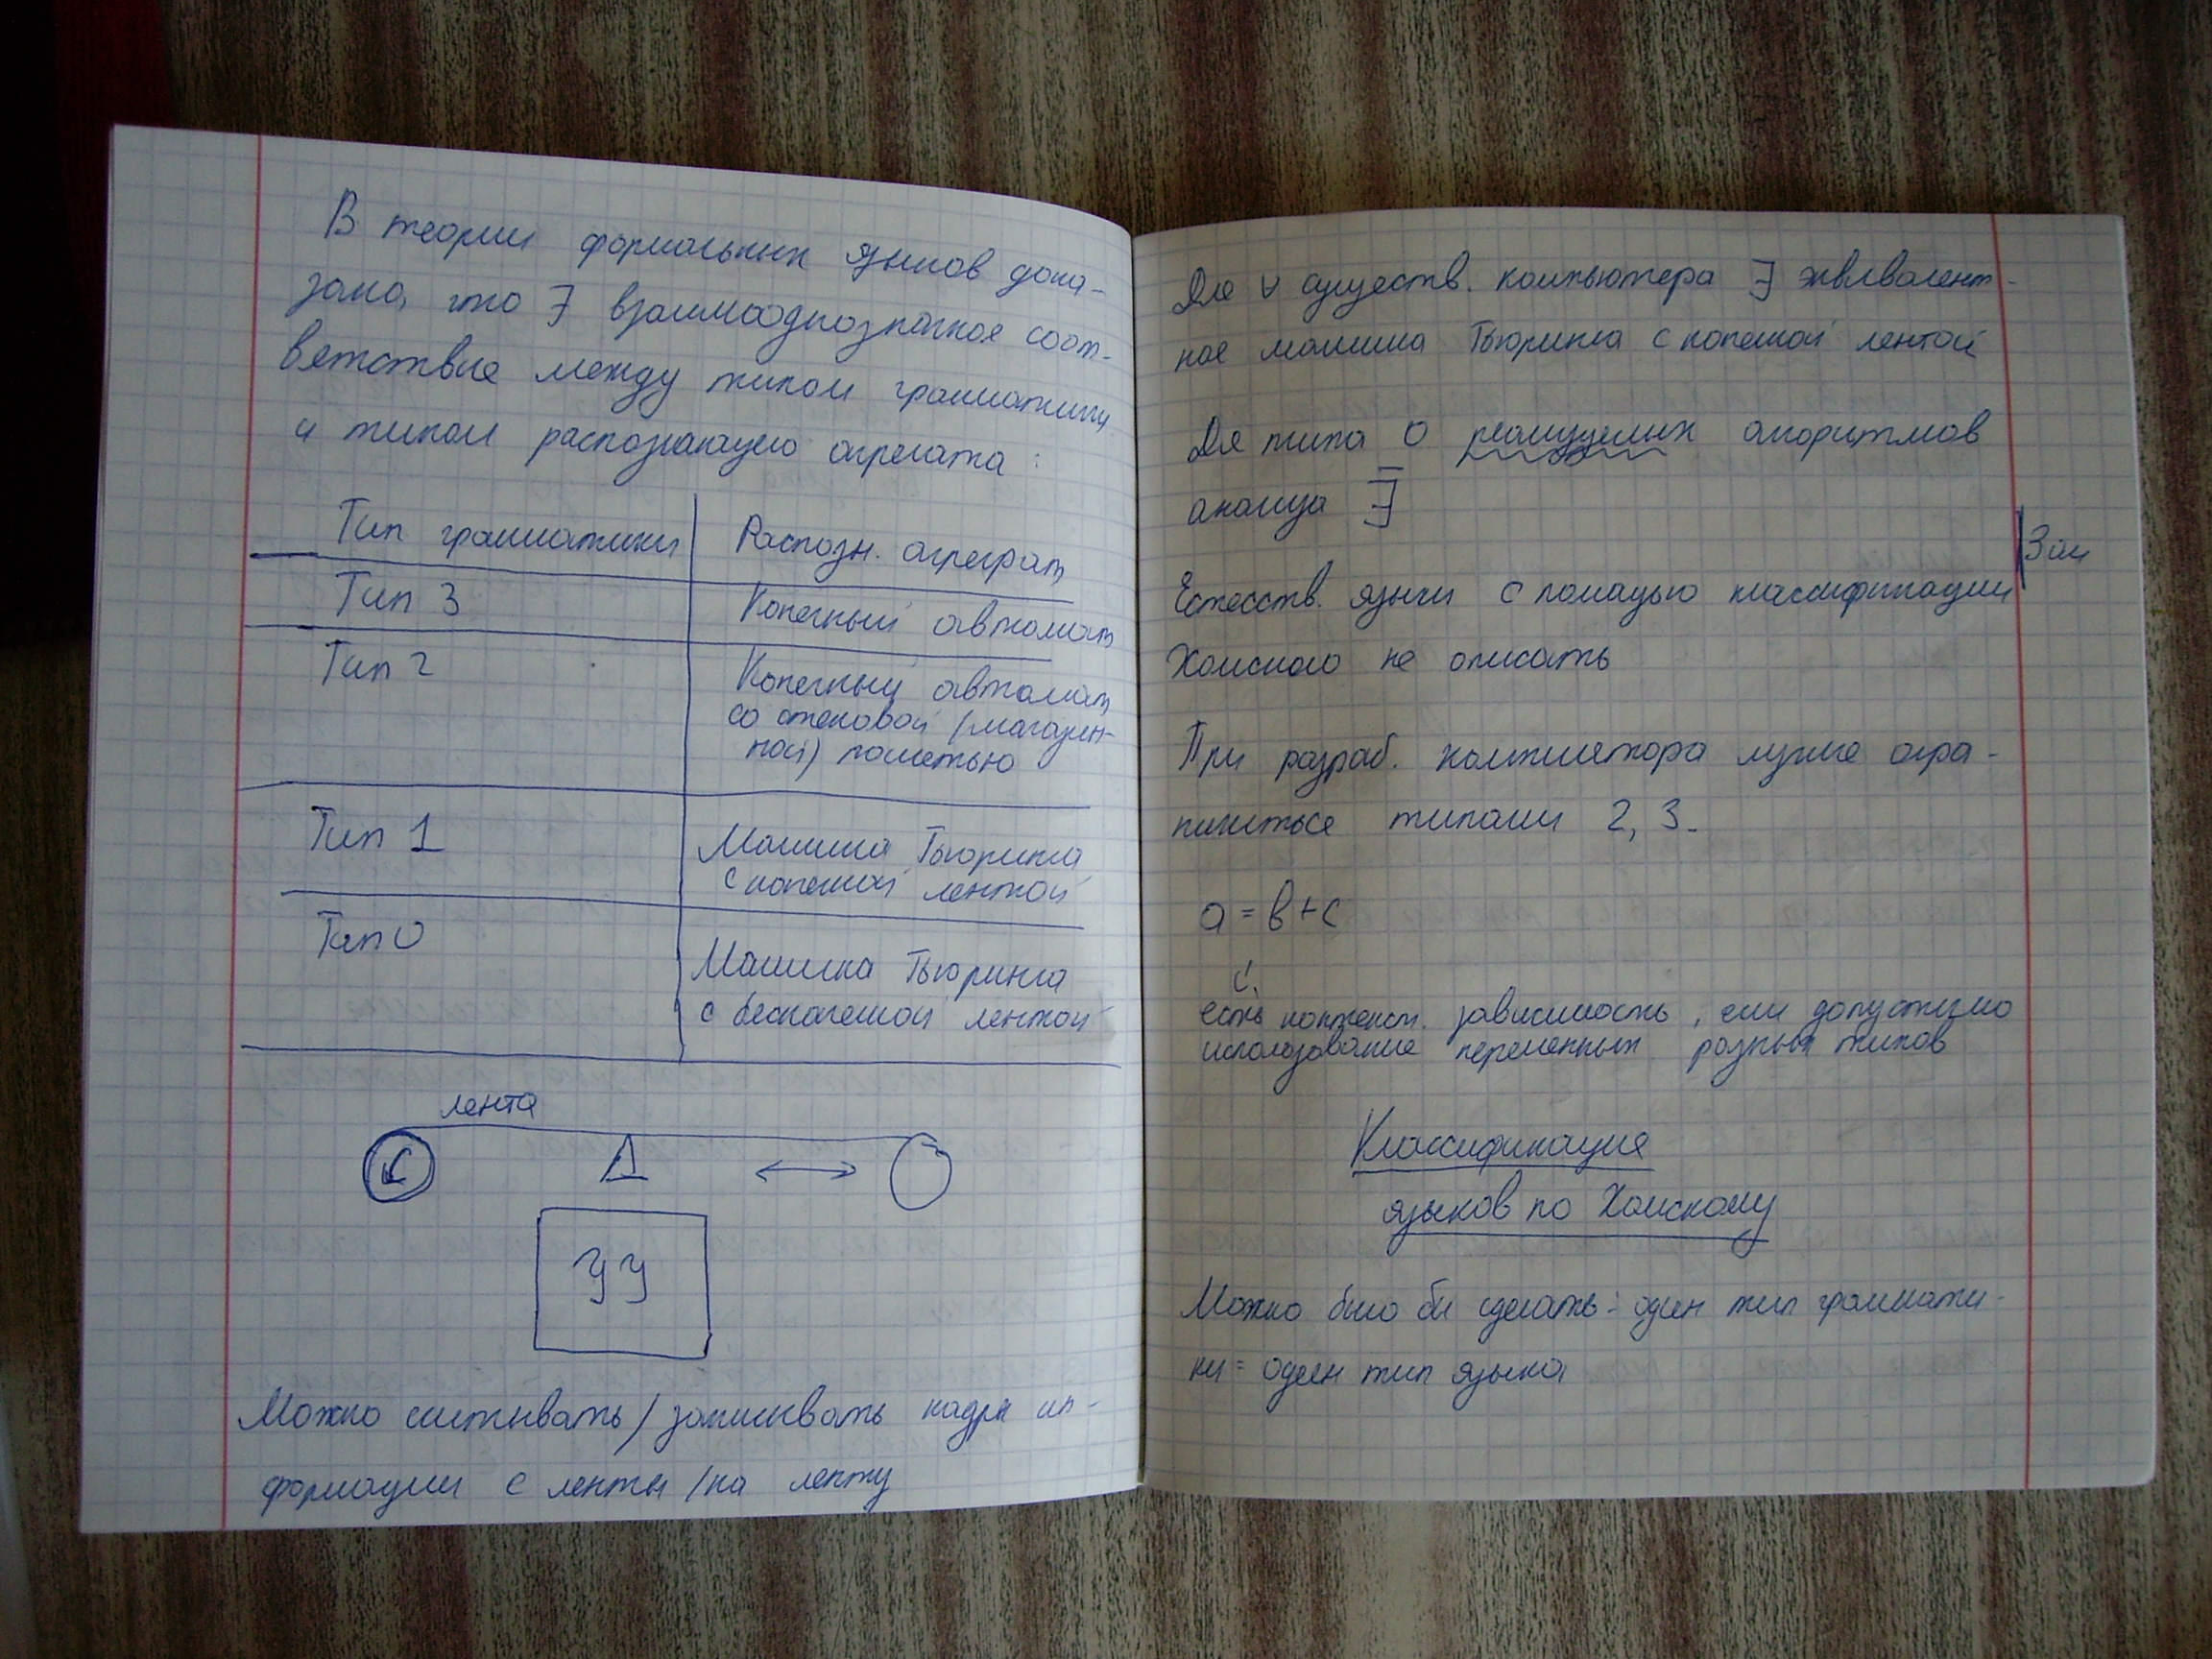 В теории формальных языков дока-
зано, что ∃ взаимооднозначное соот-
ветствие между типом грамматики
и типом распознающего агрегата :
Тип грамматики Распозн. агреграт
Тип 3 Конечный автомат
Тип 2 Конечный автомат
со стековой (магазин-
ной) памятью
Тип 1 Машина Тьюринга
с конечной лентой
Тип 0 Машина Тьюринга
с бесконечной лентой
лента
УУ
Можно считывать / записывать кадры ин-
формации с ленты / на ленту
Для ∀ существ. компьютера ∃ эквивалент-
ная машина Тьюринга с конечной лентой
Для типа 0 реализуемых алгоритмов
анализа ∄
Зам
Естесств. языки с помощью классификации
Хомского не описать
При разраб. компилятора лучше огра-
ничиться типами 2, 3.
a = b + c
есть контекст. зависимость, если допустимо
использование переменных разных типов
Классификация
языков по Хомскому
Можно было бы сделать: один тип граммати-
ки = один тип языка